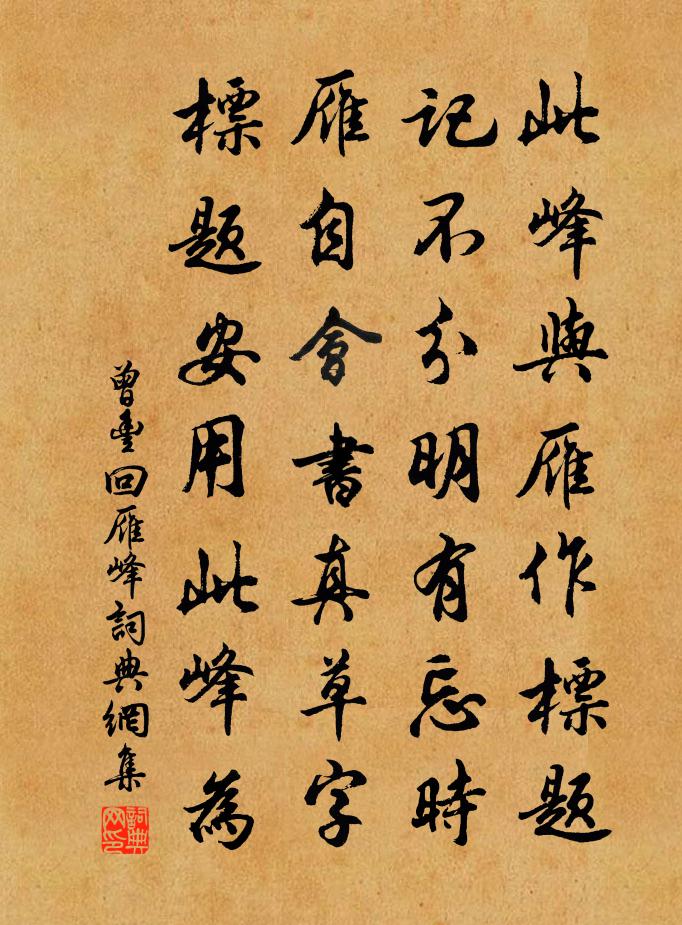 此峰與雁作標題
記不分明有忘時
雁自會書真草字
標題安用此峰為
曾豊回雁峰詞典網集
詞典網印